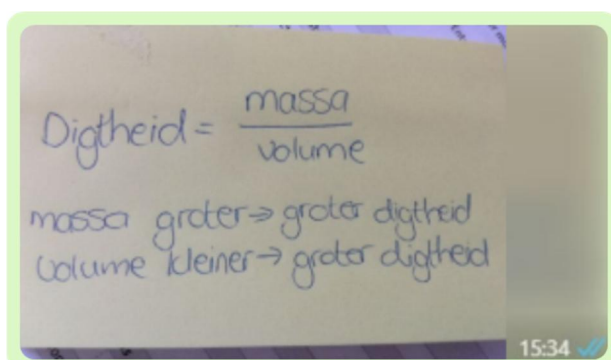 Digtheid = massa
volume
massa groter → groter digtheid
volume kleiner → groter digtheid
15:34